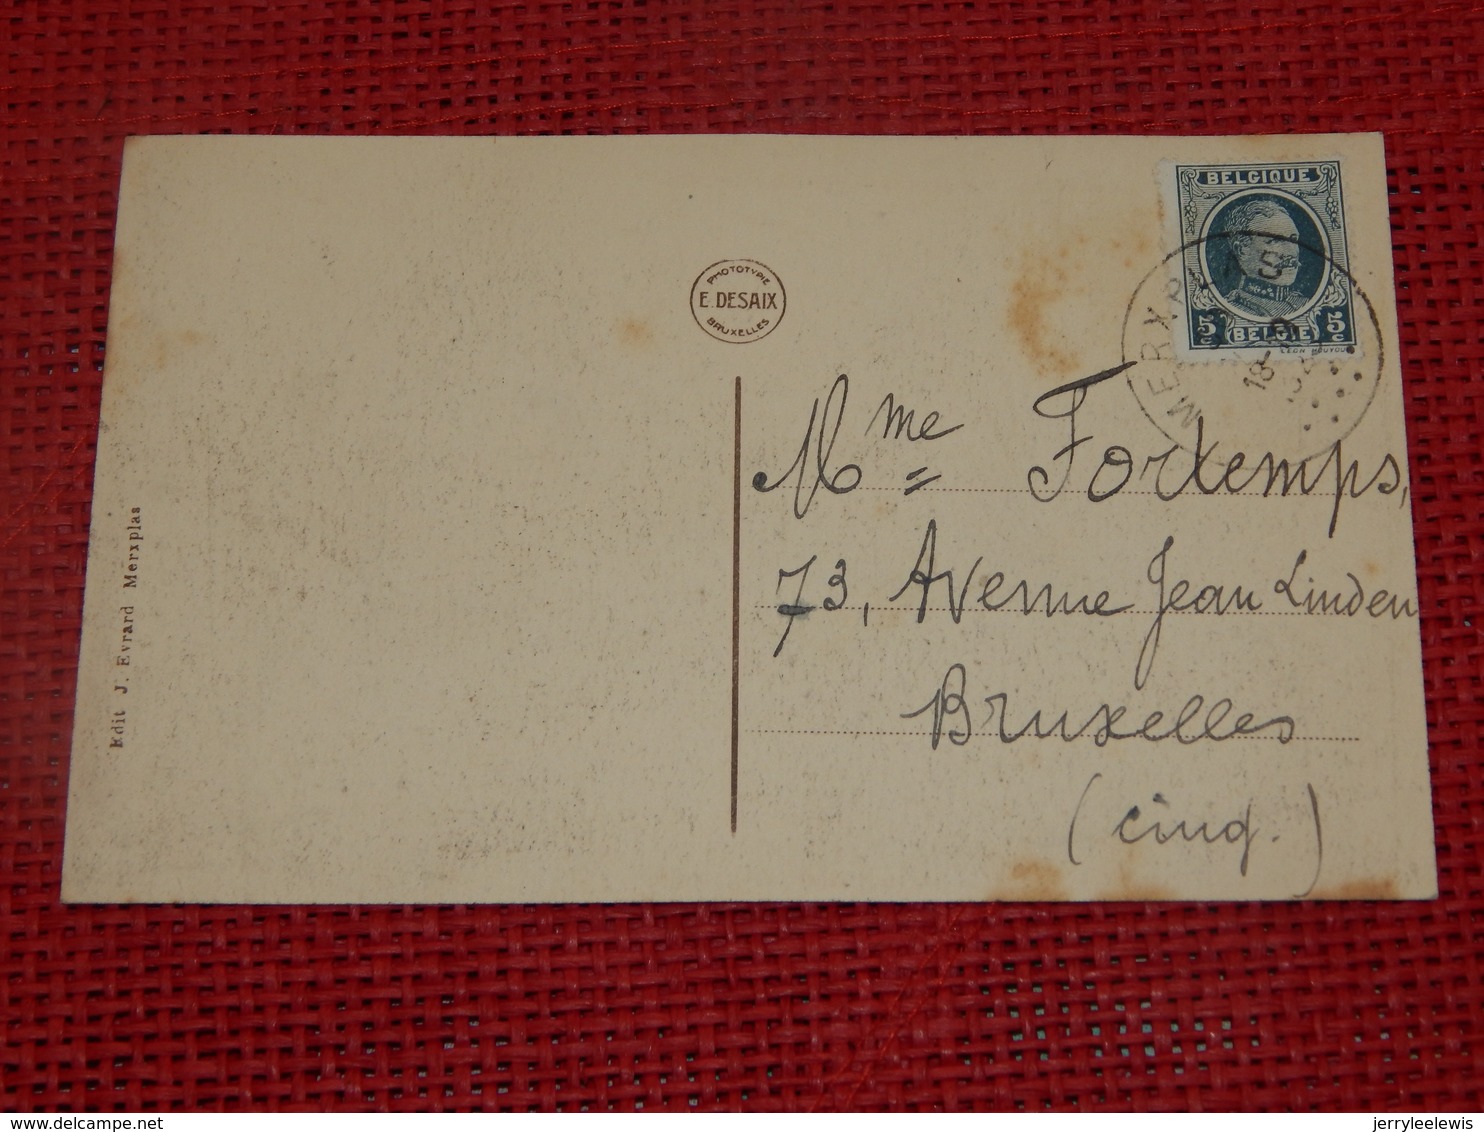 BELGIQUE
5c 5c
BELGIE
MERXPLAS
18-19
PHOTOTYPIE
E. DESAIX
BRUXELLES
Mme Fortemps,
73, Avenue Jean Linden
Bruxelles
(cinq.)
Edit J. Evrard Merxplas
www.delcampe.net
jerryleelewis